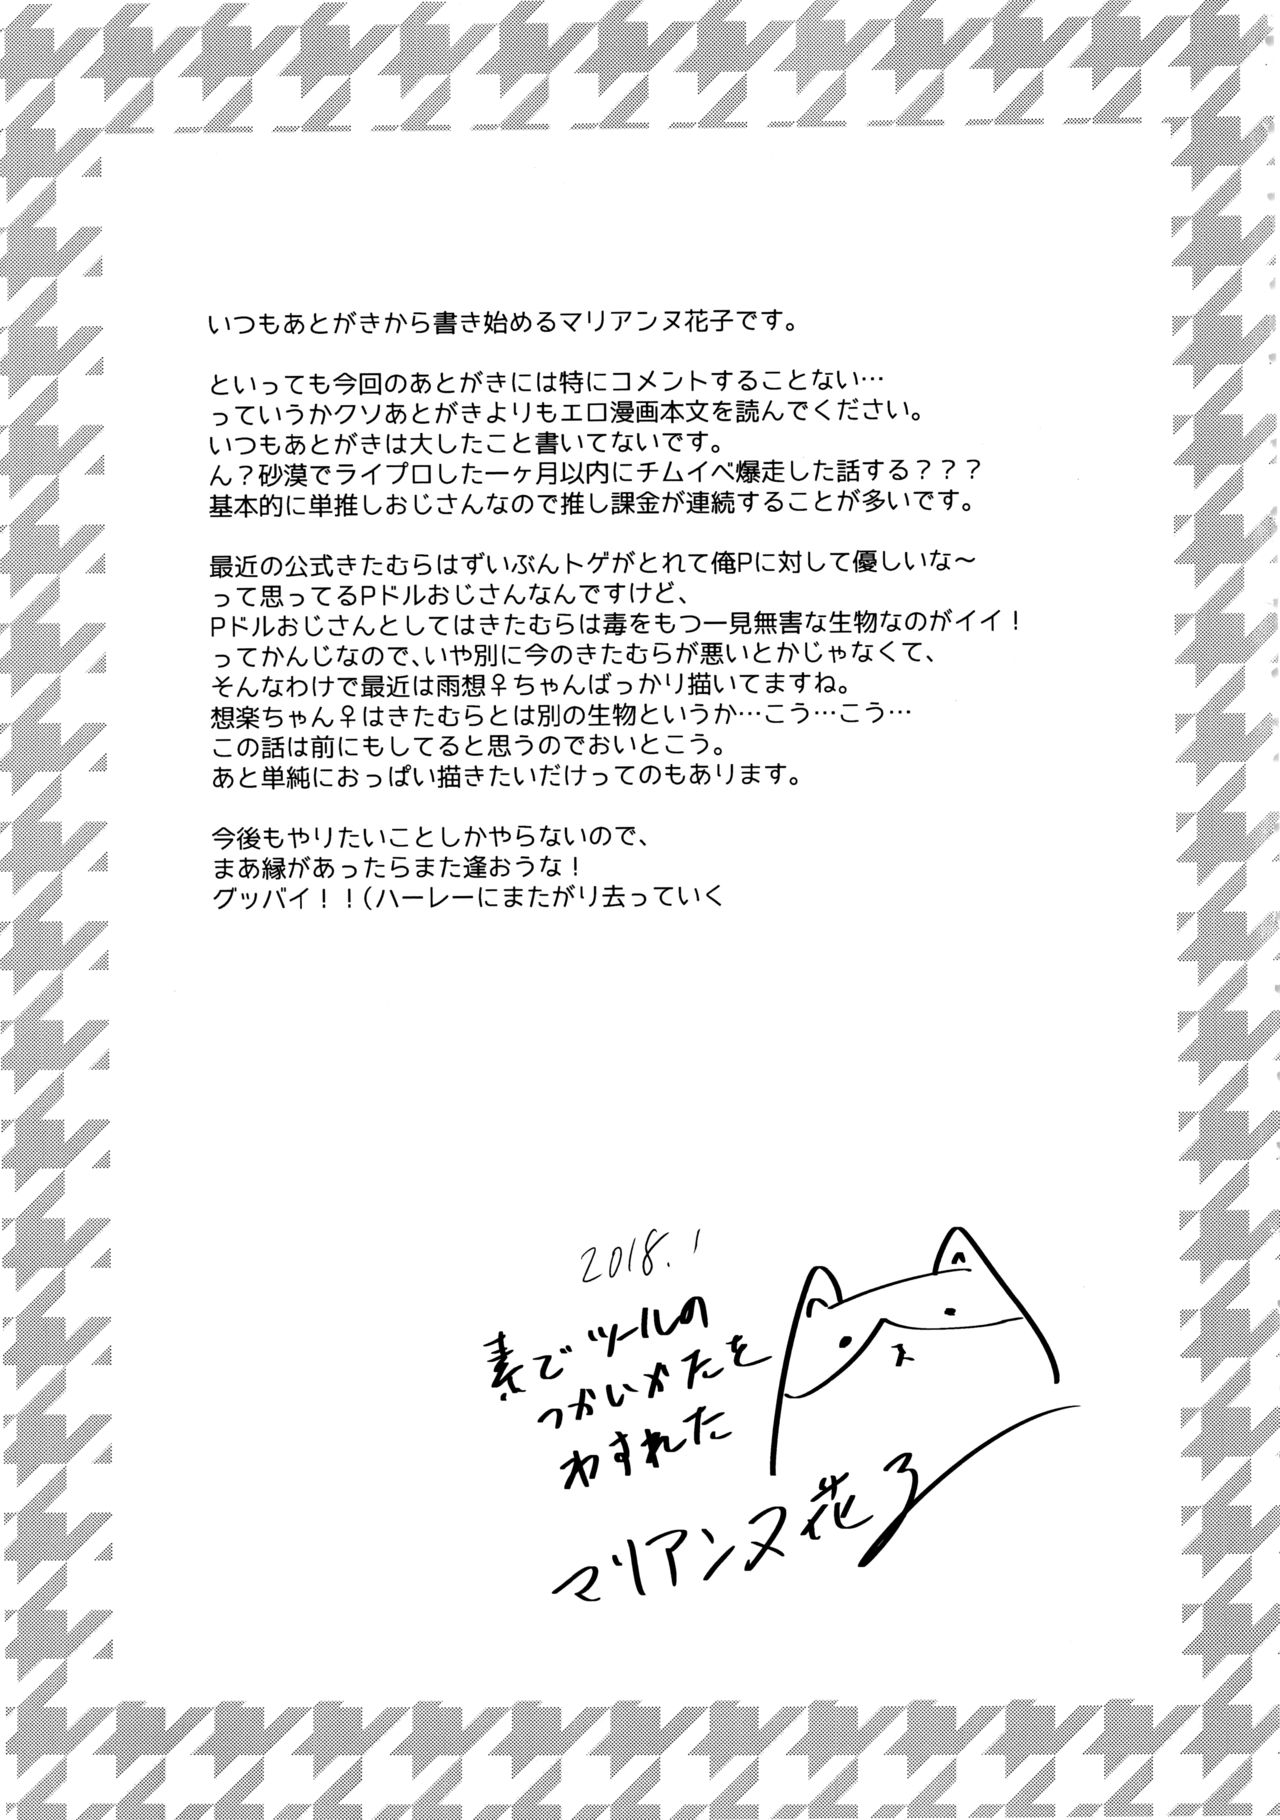 いつもあとがきから書き始めるマリアンヌ花子です。
といっても今回のあとがきには特にコメントすることない…
っていうかクソあとがきよりもエロ漫画本文を読んでください。
いつもあとがきは大したこと書いてないです。
ん？砂漠でライプロした一ヶ月以内にチムイベ爆走した話する？？？
基本的に単推しおじさんなので推し課金が連続することが多いです。
最近の公式きたむらはずいぶんトゲがとれて俺Pに対して優しいな〜
って思ってるPドルおじさんなんですけど、
Pドルおじさんとしてはきたむらは毒をもつ一見無害な生物なのがイイ！
ってかんじなので、いや別に今のきたむらが悪いとかじゃなくて、
そんなわけで最近は雨想♀ちゃんばっかり描いてますね。
想楽ちゃん♀はきたむらとは別の生物というか…こう…こう…
この話は前にもしてると思うのでおいとこう。
あと単純におっぱい描きたいだけってのもあります。
今後もやりたいことしかやらないので、
まあ縁があったらまた逢おうな！
グッバイ！！(ハーレーにまたがり去っていく
2018.1
素でツールの
つかいかたを
わすれた
マリアンヌ花子